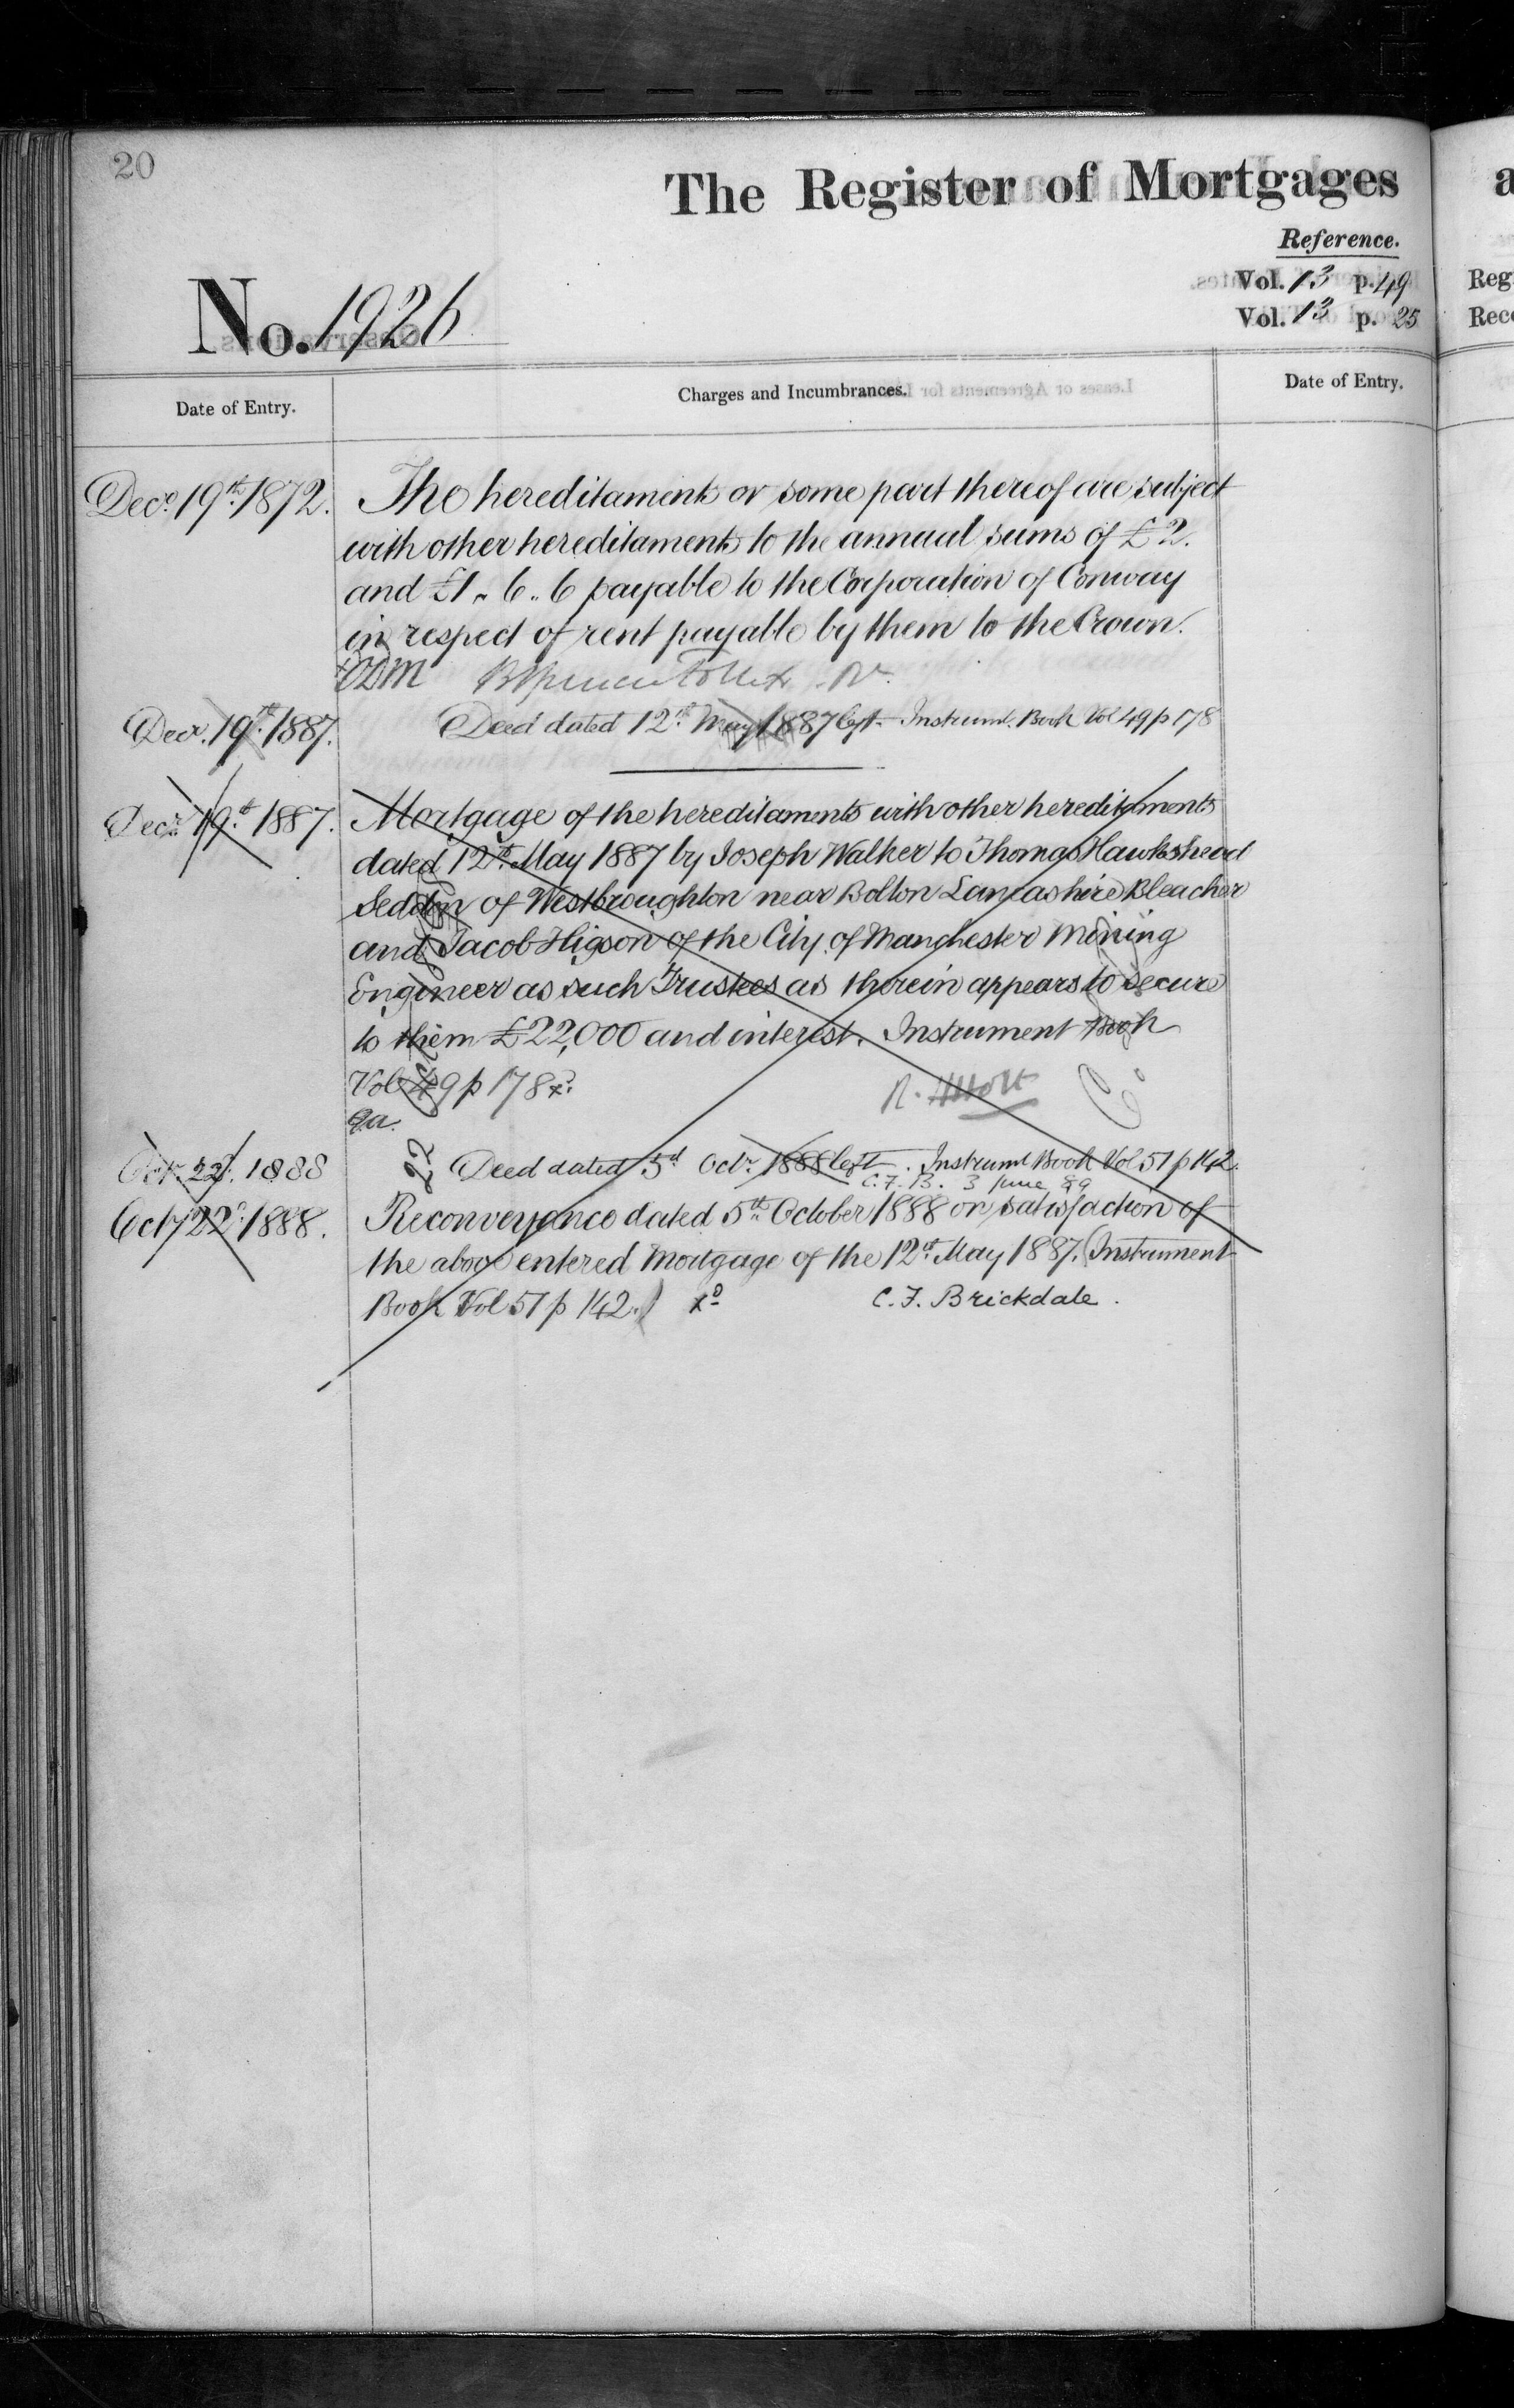 20
The Register of Mortgages
Reference.
Vol. 13 p. 49
Vol. 13 p. 25
No. 1926
Date of Entry.
Charges and Incumbrances.
Date of Entry.
Decr. 19th 1872. The hereditaments or some part thereof are subject
with other hereditaments to the annual sums of £2.
and £1 " 6 " 6 payable to the Corporation of Conway
in respect of rent payable by them to the Crown.
Decr. 19th 1887. Deed dated 12th May 1887 left. Instrumt. Book Vol 49 p 178
Decr. 19th 1887. Mortgage of the hereditaments with other hereditaments
dated 12th May 1887 by Joseph Walker to Thomas Hawkshead
Seddon of Westbroughton near Bolton Lancashire Bleacher
and Jacob Higson of the City of Manchester Mining
Engineer as such Trustees as therein appears to secure
to them £22,000 and interest. Instrument Book
Vol 49 p 178
Octr. 22d. 1888 Deed dated 5th Octr. 1888 left. Instrumt Book Vol 51 p 142.
C.F.B. 3 June 89
Oct 22d 1888. Reconveyance dated 5th October 1888 on satisfaction of
the above entered Mortgage of the 12th May 1887. (Instrument
Book Vol 51 p 142.) C. F. Brickdale.
a
Reg
Rec